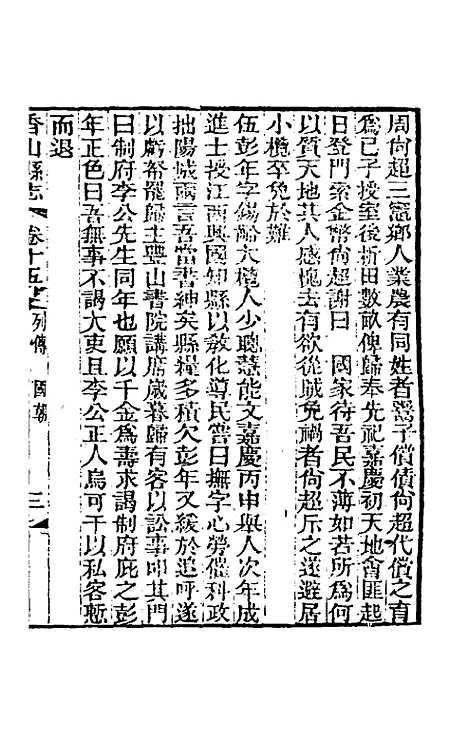 周尙超三竈鄉人業農有同姓者鬻子償債尙超代償之育
爲已子授室後析田數畝俾歸奉先祀嘉慶初天地會匪起
日登門索金幣尙超謝曰 國家待吾民不薄如若所爲何
以質天地其人感愧去有欲從賊免禍者尙超斥之遂避居
小欖卒免於難
伍彭年字錫齡大欖人少聰慧能文嘉慶丙申舉人次年成
進士授江西興國知縣以敎化導民嘗曰撫字心勞催科政
拙陽城兩言吾當書紳矣縣糧多積欠彭年又緩於追呼遂
以虧帑罷歸主豐山書院講席歲暮歸有客以訟事叩其門
曰制府李公先生同年也願以千金爲壽求謁制府庇之彭
年正色曰吾無事不謁大吏且李公正人烏可干以私客慙
而退
香山縣志 卷十五 列傳 國朝 三